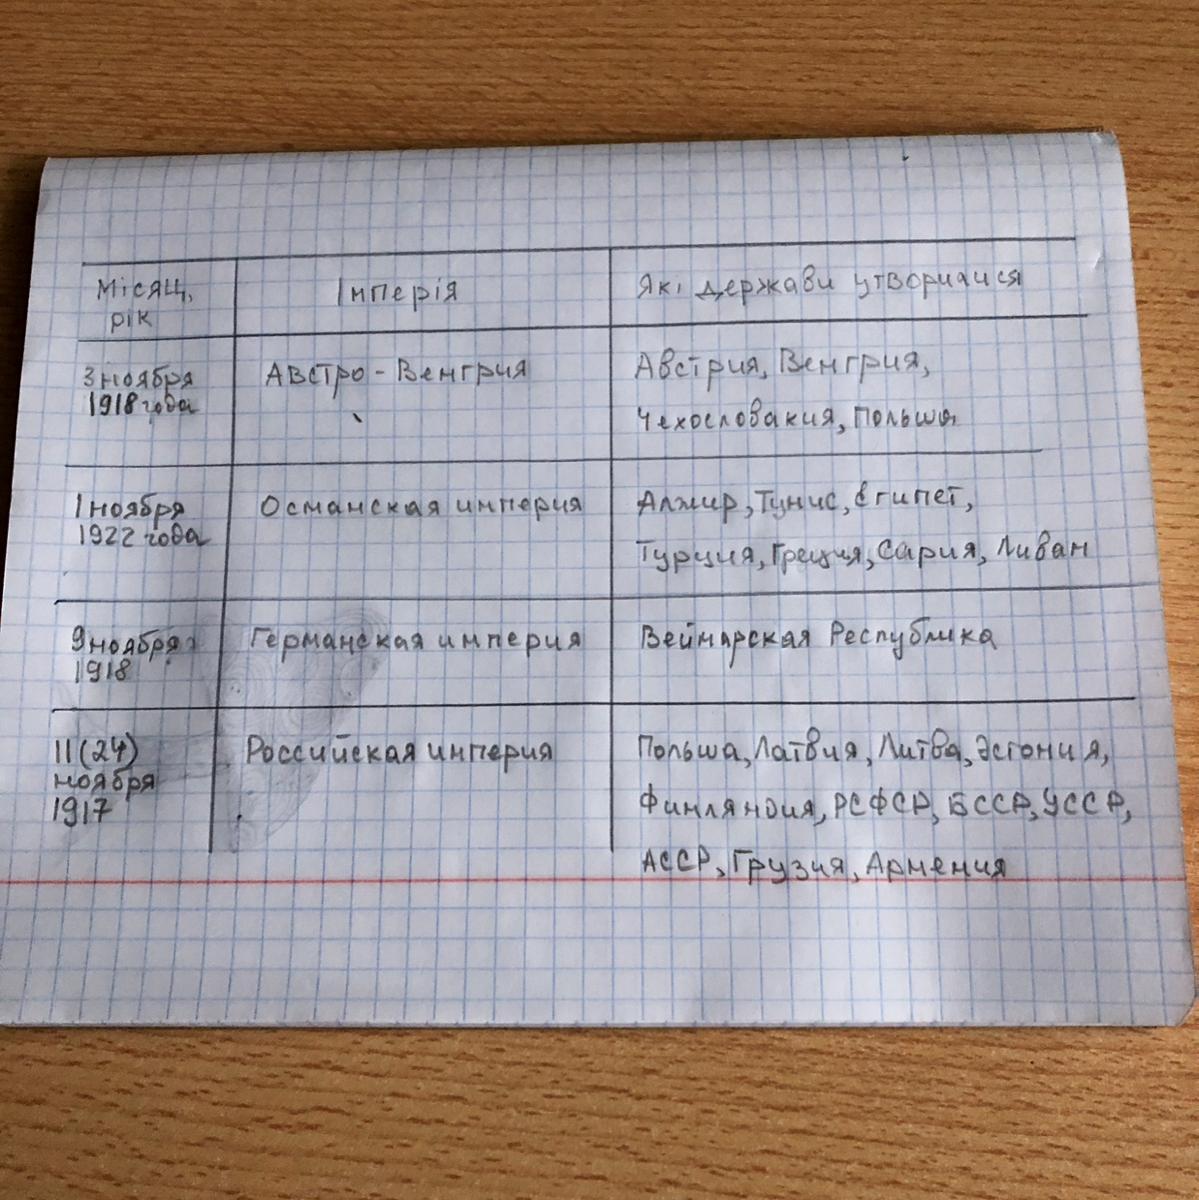 Місяц, рік
Імперія
Які держави утворилися
3 ноября
1918 года
Австро - Венгрия
Австрия, Венгрия,
Чехословакия, Польша
1 ноября
1922 года
Османская империя
Алжир, Тунис, Египет,
Турция, Греция, Сария, Ливан
9 ноября
1918
Германская империя
Веймарская Республика
11(24)
ноября
1917
Российская империя
Польша, Латвия, Литва, Эстония,
Финляндия, РСФСР, БССР, УССР,
АССР, Грузия, Армения